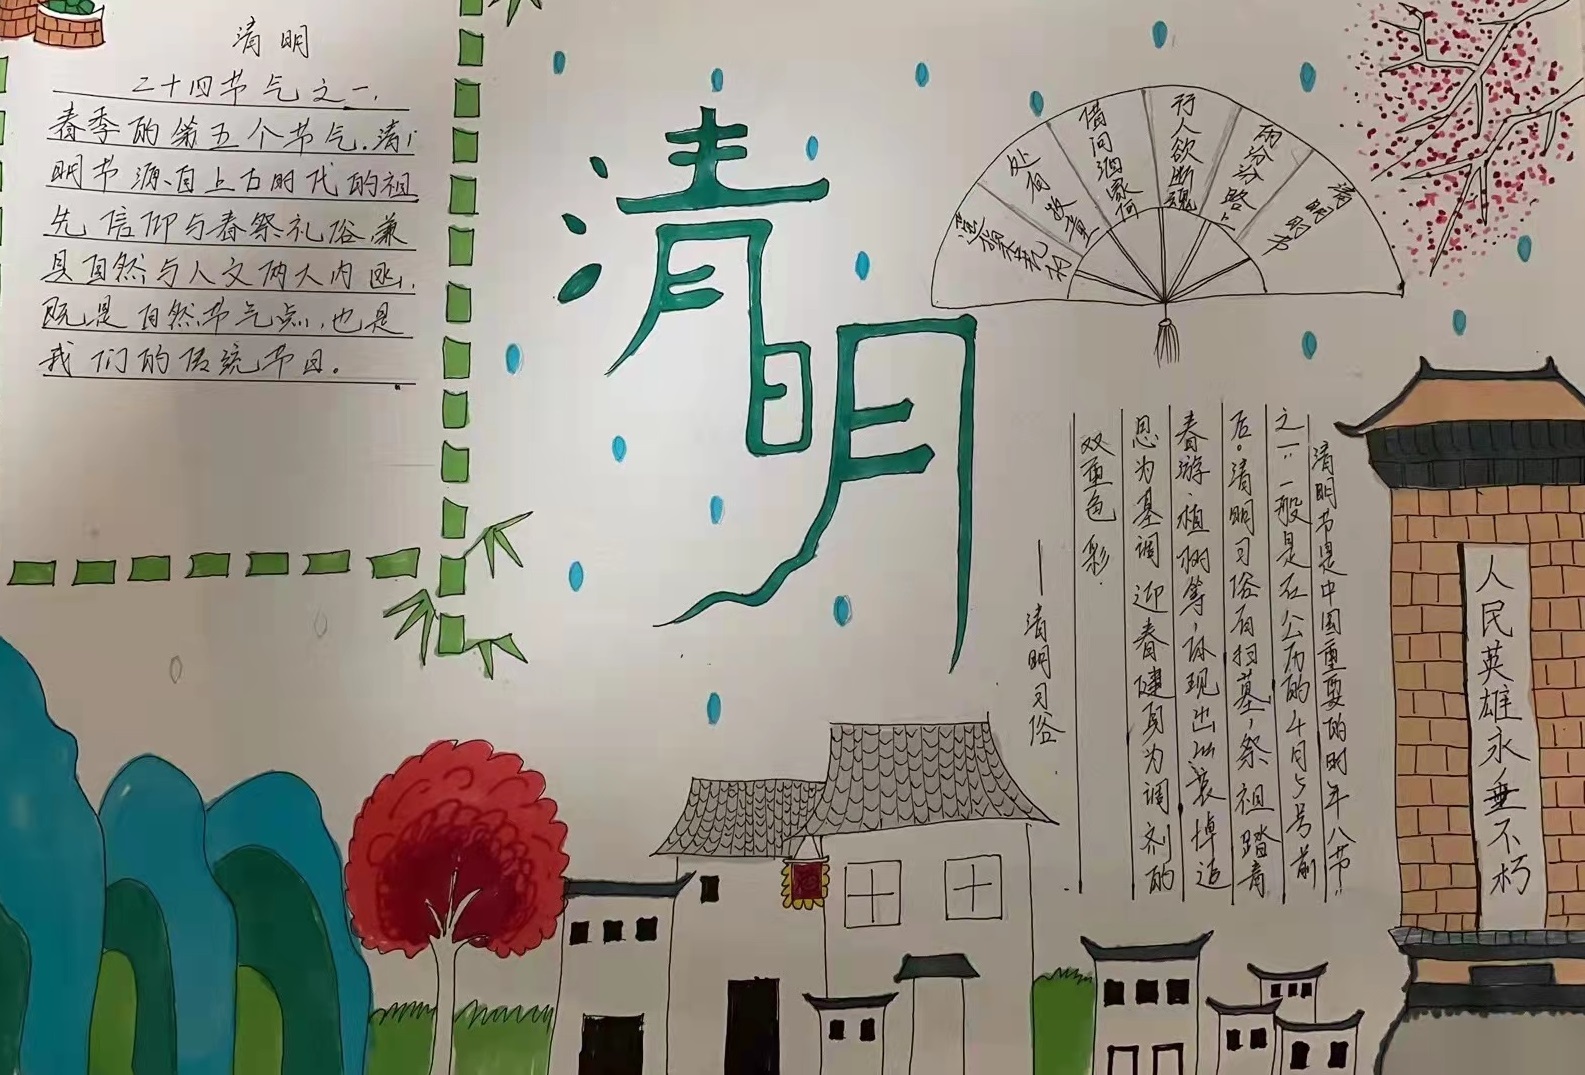 清明
二十四节气之一,
春季的第五个节气.清
明节源自上古时代的祖
先信仰与春祭礼俗兼
具自然与人文两大内涵,
既是自然节气点,也是
我们的传统节日。
清明
清明时节
雨汾汾路上
行人欲断魂
借问酒家何
处 牧童
清明节是中国重要的时年八节
之一.一般是在公历的4月5号前
后。清明习俗有扫墓,祭祖踏青
春游,植树等,体现出以装悼追
思为基调 迎春健身为调剂的
双重色彩.
——清明习俗
人民英雄永垂不朽
酒